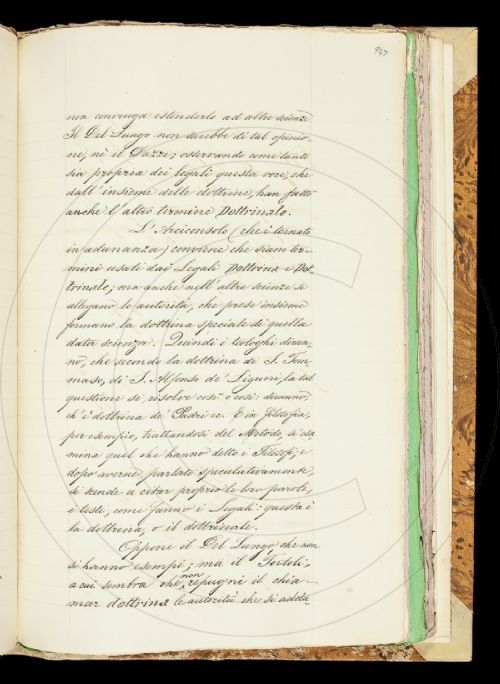 947
non convenga estenderlo ad altre scienze.
Il Del Lungo non sarebbe di tal opinio-
ne, nè il Dazzi; osservando come tanto
sia propria dei legali questa voce, che
dall'insieme delle dottrine, han fatto
anche l'altro termine Dottrinale.
L'Arciconsolo (che è tornato
in adunanza) conviene che siano ter-
mini usati dai Legali Dottrina e Dot-
trinale; ma anche nell'altre scienze si
allegano le autorità, che prese insieme
formano la dottrina speciale di quella
data scienza. Quindi i teologhi diran-
no, che secondo la dottrina di S. Tom-
maso, di S. Alfonso de' Liguori, la tal
questione si risolve così e così: diranno,
ch'è dottrina de' Padri ec. E in filosofia,
per esempio, trattandosi del Metodo, si esa-
mina quel che hanno detto i Filosofi; e
dopo averne parlato speculativamente,
si scende a citar proprio le loro parole,
i testi, come fanno i Legali: questa è
la dottrina, o il dottrinale.
Oppone il Del Lungo, che non
si hanno esempi; ma il Tortoli,
a cui sembra che non repugni il chia-
mar dottrina le autorità che si addu-